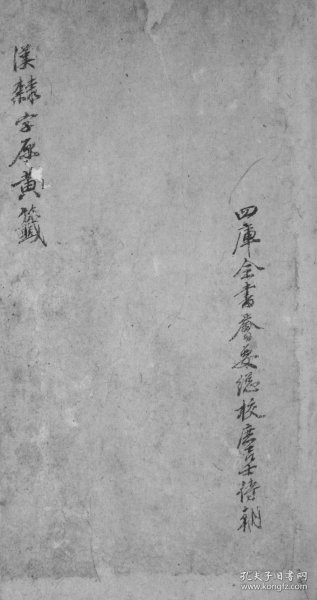 四庫全書薈要總校庶吉士侍朝
漢隸字原黃籤
孔夫子旧书网
kongfz.com